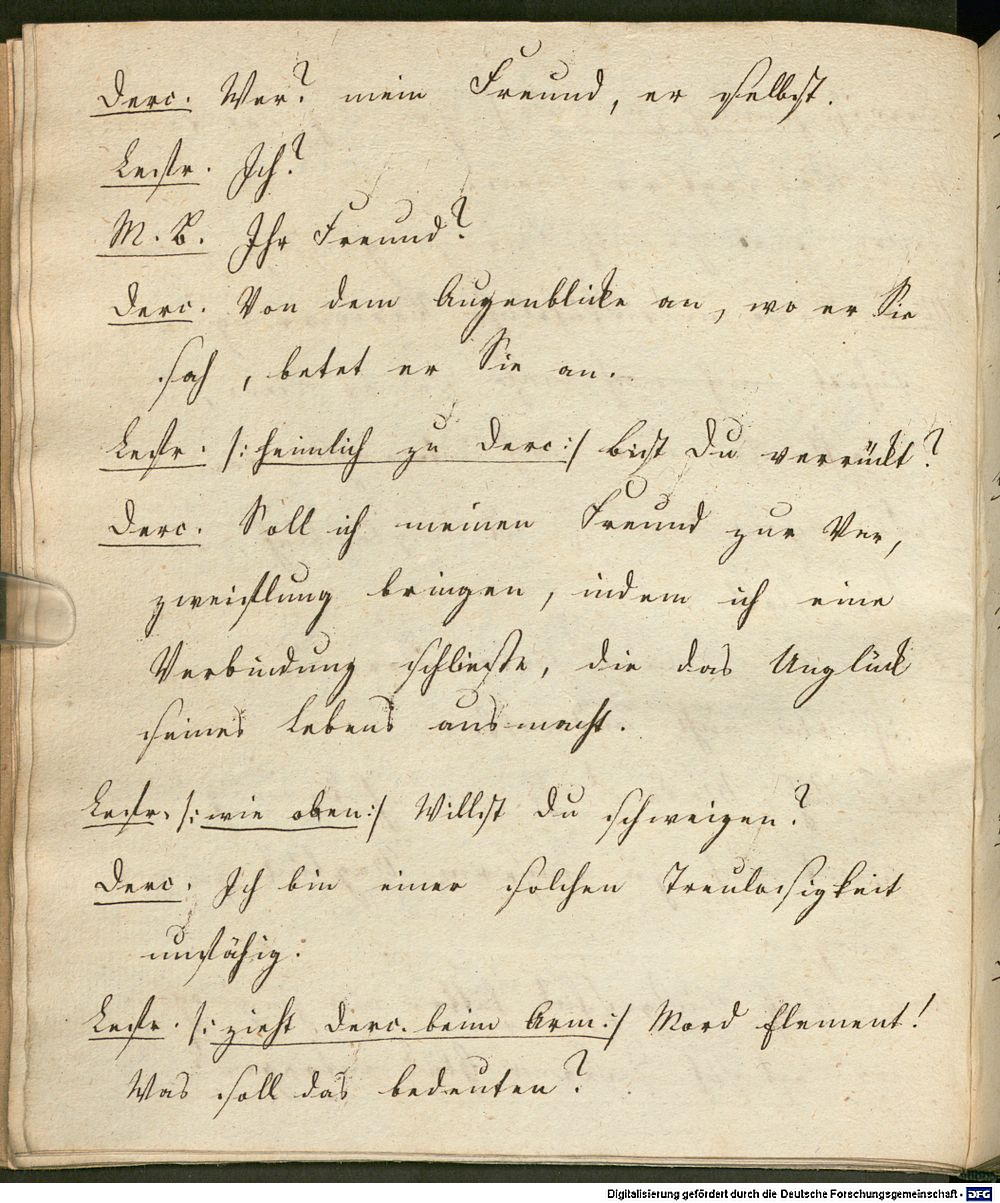 Derc. Wer? mein Freund, er selbst.
Lestr. Ich?
M. B. Ihr Freund?
Derc. Von dem Augenblicke an, wo er Sie
sah, betet er Sie an.
Lestr. /: heimlich zu Derc :/ bist Du verrückt?
Derc. Soll ich meinen Freund zur Ver,
zweiflung bringen, indem ich eine
Verbindung schließe, die das Unglück
seines Lebens ausmacht.
Lestr. /: wie oben :/ Willst Du schweigen?
Derc. Ich bin einer solchen Treulosigkeit
unfähig.
Lestr. /: zieht Derc. beim Arm :/ Mord Element!
Was soll das bedeuten?
Digitalisierung gefördert durch die Deutsche Forschungsgemeinschaft - DFG